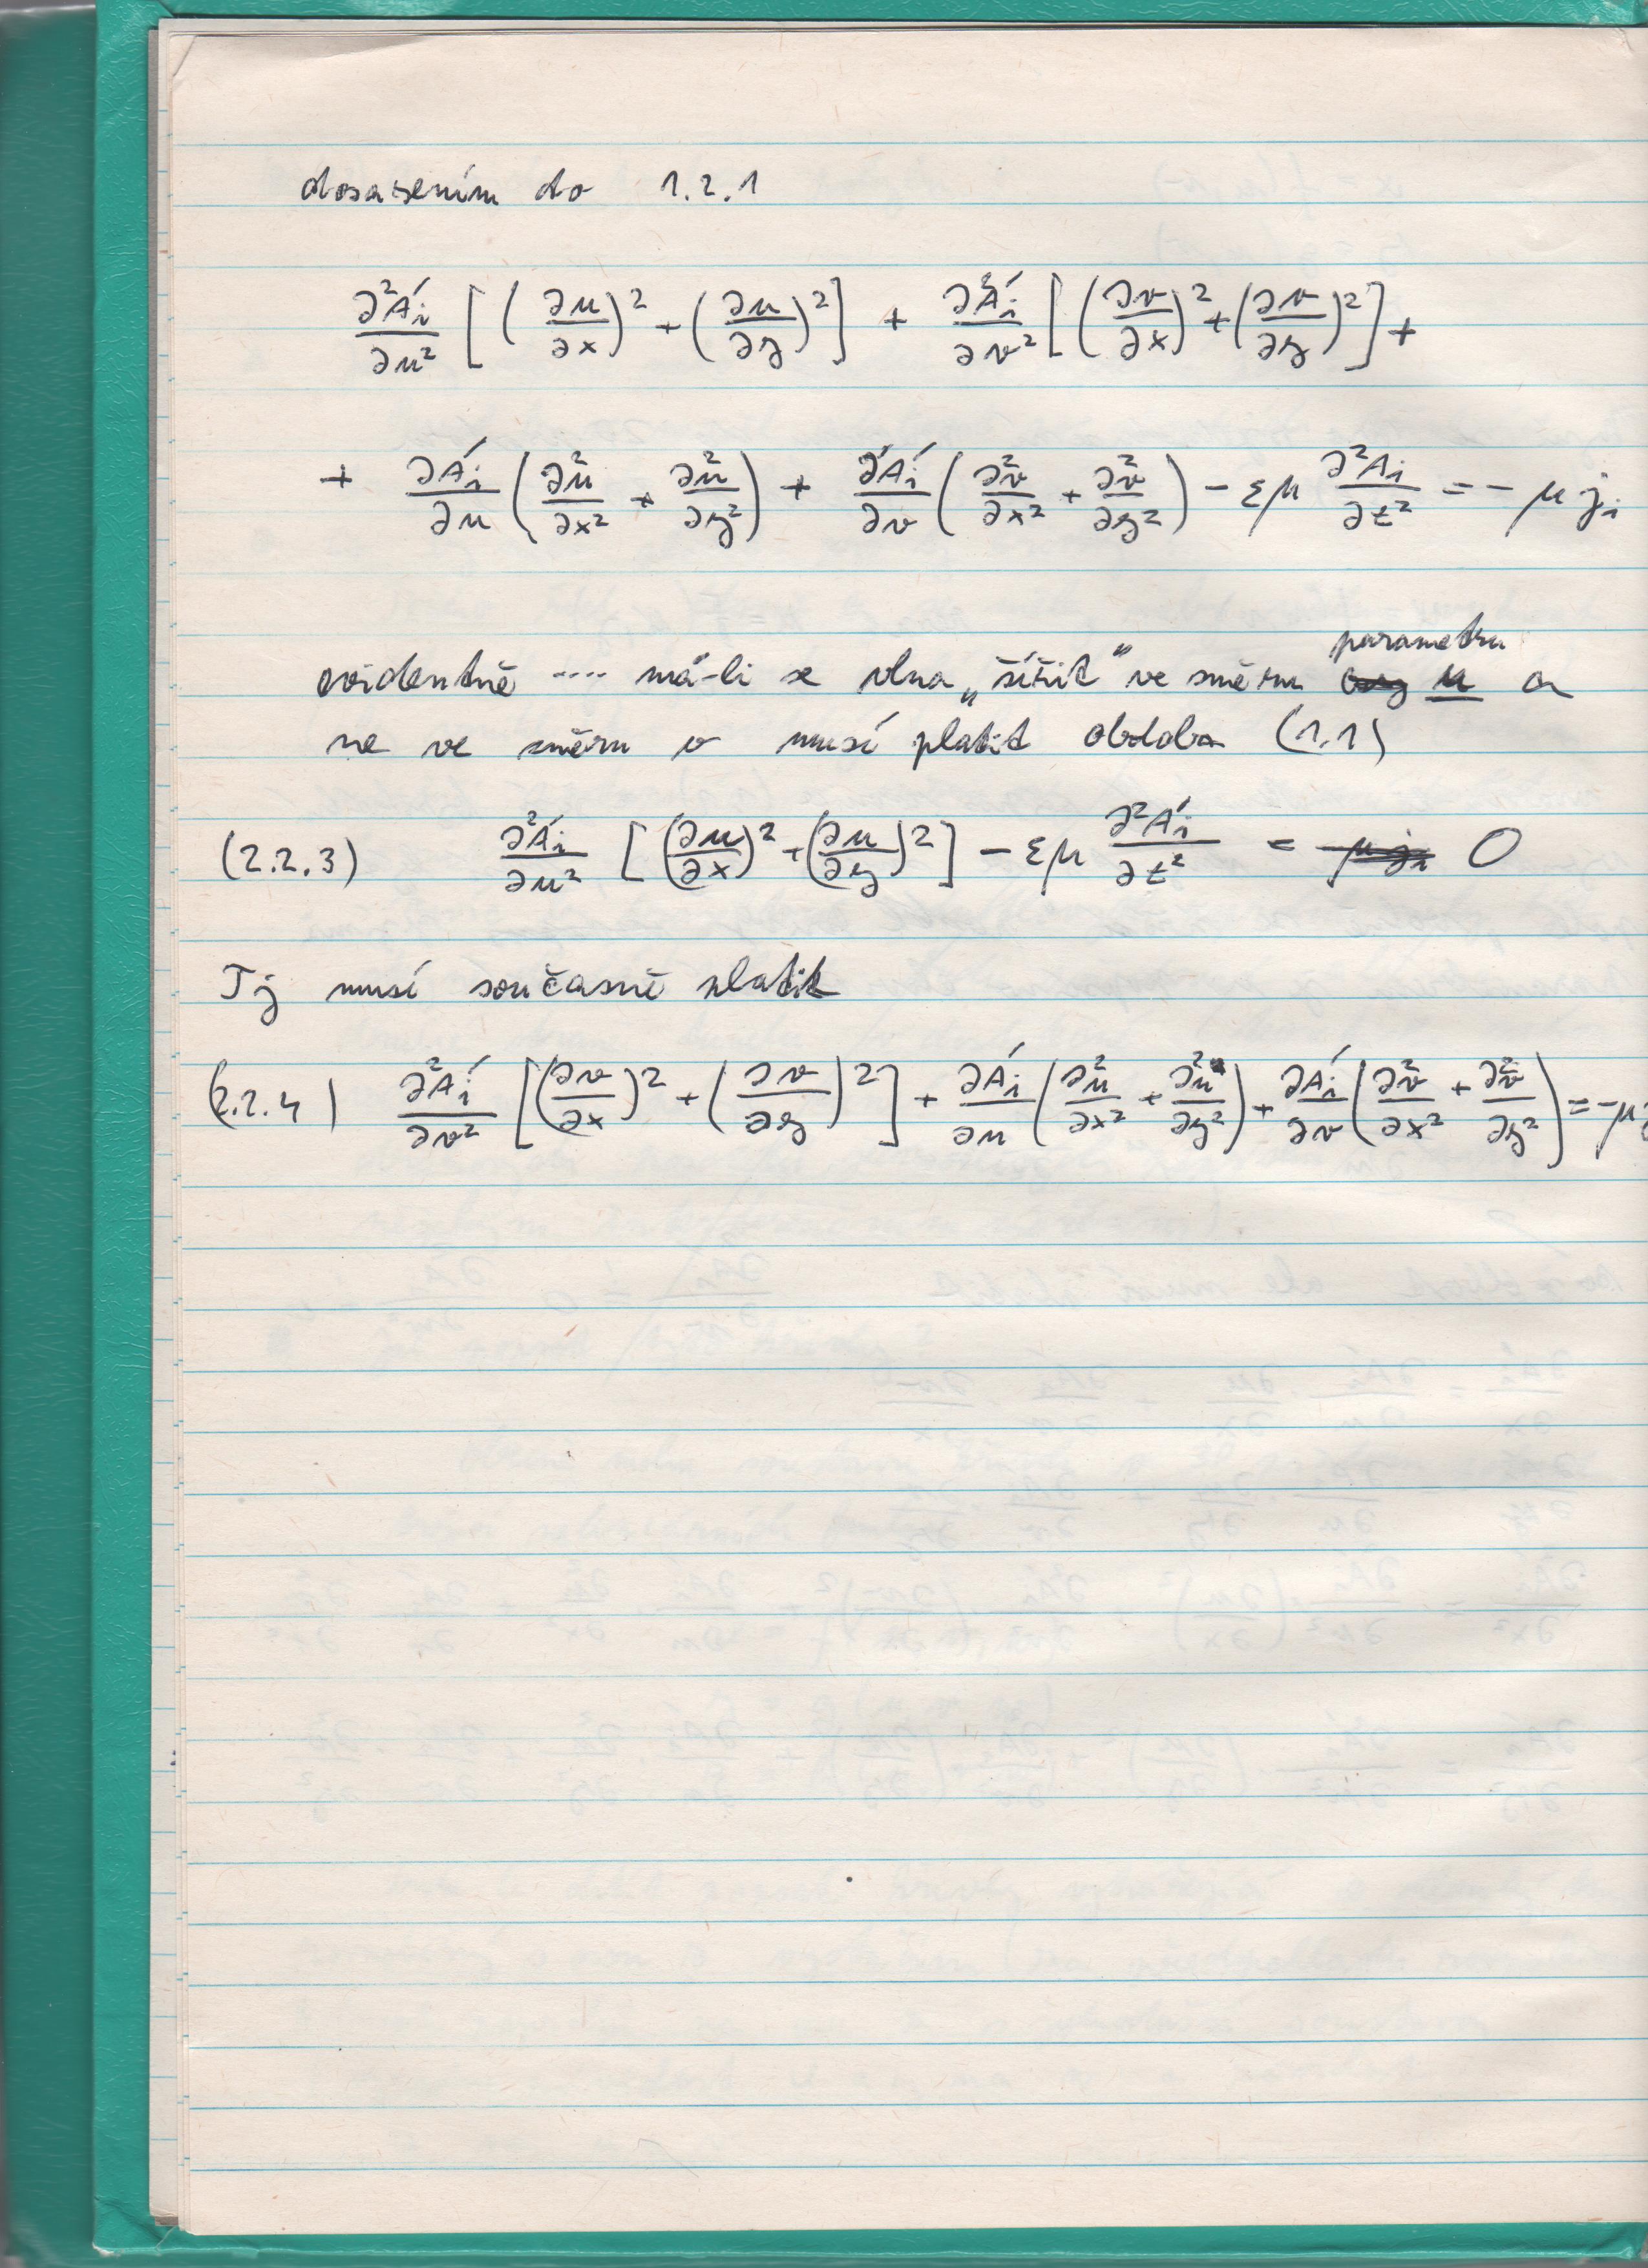 dosazením do 1.2.1
∂²A'ᵢ/∂u² [(∂u/∂x)² + (∂u/∂y)²] + ∂²A'ᵢ/∂v² [(∂v/∂x)² + (∂v/∂y)²] +
+ ∂A'ᵢ/∂u (∂²u/∂x² + ∂²u/∂y²) + ∂A'ᵢ/∂v (∂²v/∂x² + ∂²v/∂y²) − εμ ∂²Aᵢ/∂t² = − μ jᵢ
parametru
evidentně .... má-li se vlna „šířit" ve směru u a
ne ve směru v musí platit obdoba (1.1)
(2.2.3) ∂²A'ᵢ/∂u² [(∂u/∂x)² + (∂u/∂y)²] − εμ ∂²A'ᵢ/∂t² = 0
Tj musí současně platit
(2.2.4) ∂²A'ᵢ/∂v² [(∂v/∂x)² + (∂v/∂y)²] + ∂A'ᵢ/∂u (∂²u/∂x² + ∂²u/∂y²) + ∂A'ᵢ/∂v (∂²v/∂x² + ∂²v/∂y²) = −μj